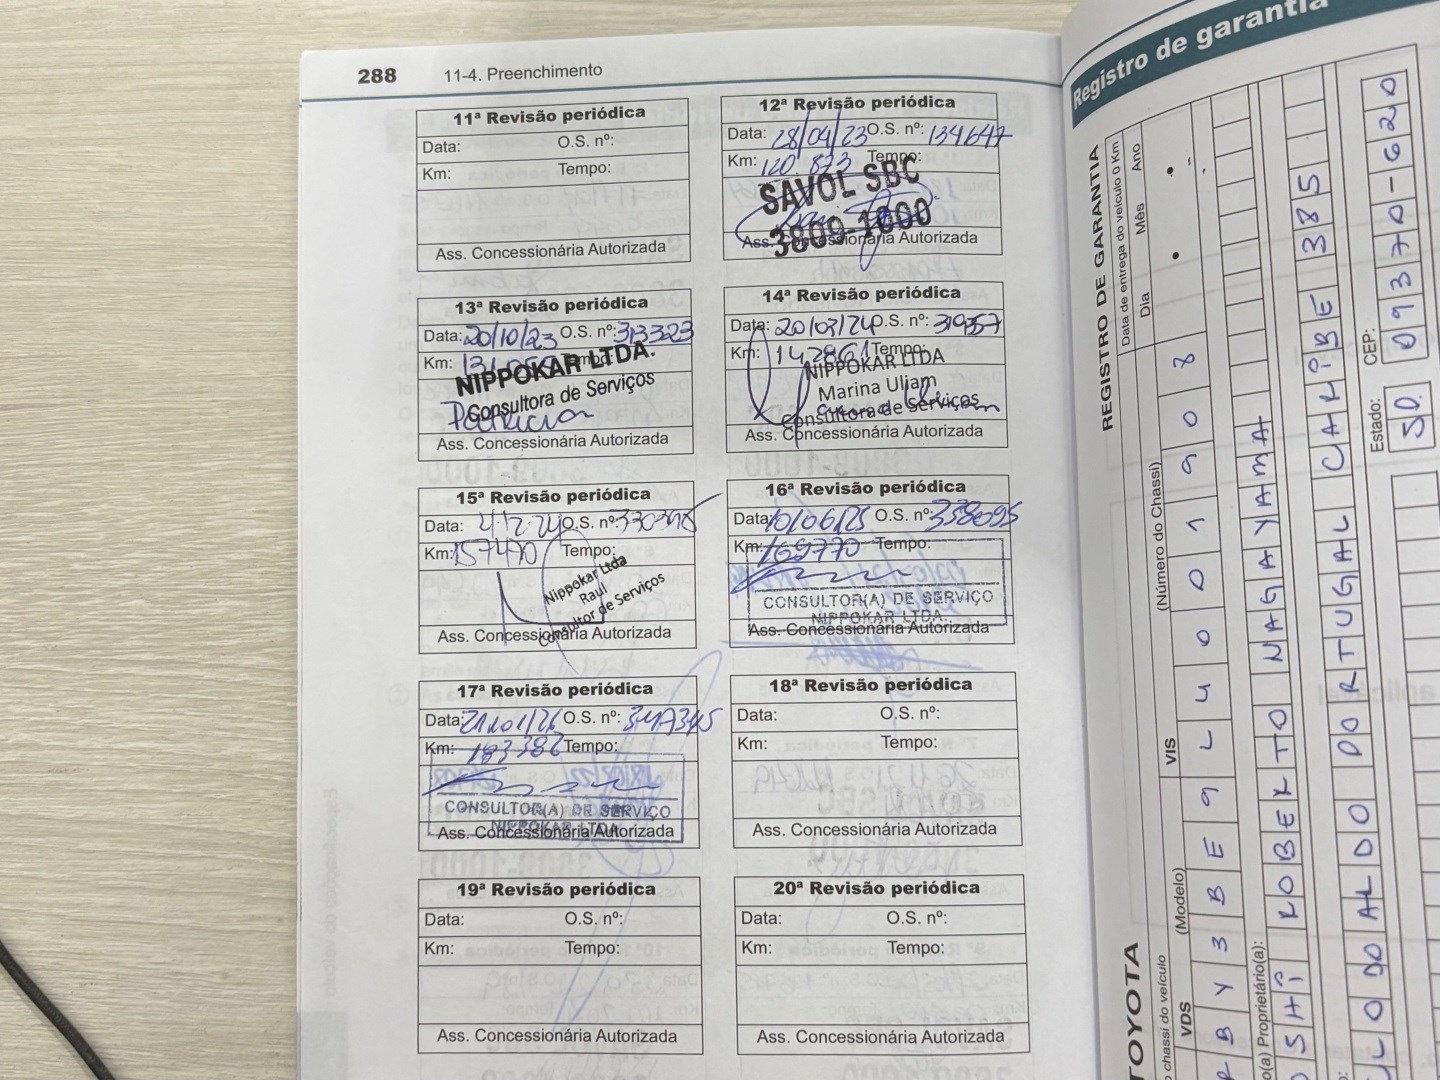 288 11-4. Preenchimento
11ª Revisão periódica
Data: O.S. nº:
Km: Tempo:
Ass. Concessionária Autorizada
12ª Revisão periódica
Data: 28/04/23 O.S. nº: 134647
Km: 120.873 Tempo:
SAVOL SBC
3809-1000
Ass. Concessionária Autorizada
13ª Revisão periódica
Data: 20/10/23 O.S. nº: 313323
Km: Tempo:
NIPPOKAR LTDA.
Consultora de Serviços
Patricia
Ass. Concessionária Autorizada
14ª Revisão periódica
Data: 20/03/24 O.S. nº: 319357
Km: 142861 Tempo:
NIPPOKAR LTDA
Marina Uliam
Consultora de Serviços
Ass. Concessionária Autorizada
15ª Revisão periódica
Data: 4.12.24 O.S. nº:
Km: 157470 Tempo:
Nippokar Ltda
Raul
Consultor de Serviços
Ass. Concessionária Autorizada
16ª Revisão periódica
Data: 10/06/25 O.S. nº: 338095
Km: 169770 Tempo:
CONSULTOR(A) DE SERVIÇO
NIPPOKAR LTDA.
Ass. Concessionária Autorizada
17ª Revisão periódica
Data: 21/01/26 O.S. nº: 347345
Km: 183386 Tempo:
CONSULTOR(A) DE SERVIÇO
NIPPOKAR LTDA.
Ass. Concessionária Autorizada
18ª Revisão periódica
Data: O.S. nº:
Km: Tempo:
Ass. Concessionária Autorizada
19ª Revisão periódica
Data: O.S. nº:
Km: Tempo:
Ass. Concessionária Autorizada
20ª Revisão periódica
Data: O.S. nº:
Km: Tempo:
Ass. Concessionária Autorizada
Registro de garantia
TOYOTA REGISTRO DE GARANTIA
Data de entrega do veículo 0 Km
Dia Mês Ano
chassi do veículo (Número do Chassi)
VDS (Modelo) VIS
BY3BE9L4U0019078
(a) Proprietário(a):
SHI ROBERTO NAGAYAMA
CLODOALDO PORTUGAL CARIBE 385
Estado: SP. CEP: 09370-620